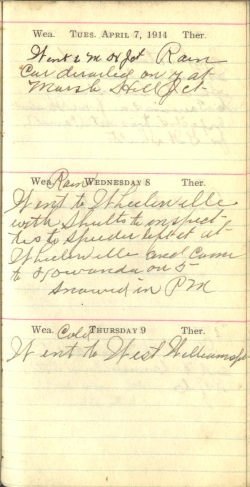 Wea. TUES. APRIL 7, 1914 Ther.
Went to M H Jct Rain
Car derailed on 7 at
Marsh Hill Jct.
Wea. Rain WEDNESDAY 8 Ther.
Went to Wheelerville
with Shults to inspect
to Speeder kept at
Wheelerville and Came
to Towanda on 5
Snowed in PM
Wea. Cold THURSDAY 9 Ther.
Went to West Williamspt